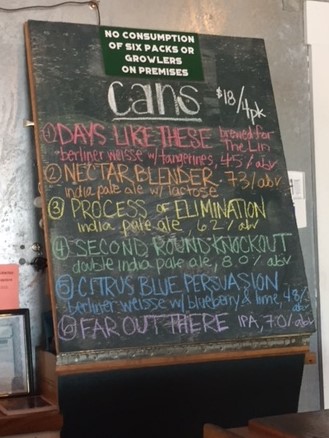 NO CONSUMPTION
OF SIX PACKS OR
GROWLERS
ON PREMISES
cans $18/4pk
① DAYS LIKE THESE brewed for
The Lin
berliner weisse w/ tangerines 4.5% abv
② NECTAR BLENDER 7.3% abv
india pale ale w/ lactose
③ PROCESS of ELIMINATION
india pale ale, 6.2% abv
④ SECOND ROUND KNOCKOUT
double india pale ale, 8.0% abv
⑤ CITRUS BLUE PERSUASION
berliner weisse w/ blueberry & lime, 4.8%
⑥ FAR OUT THERE IPA, 7.0% abv